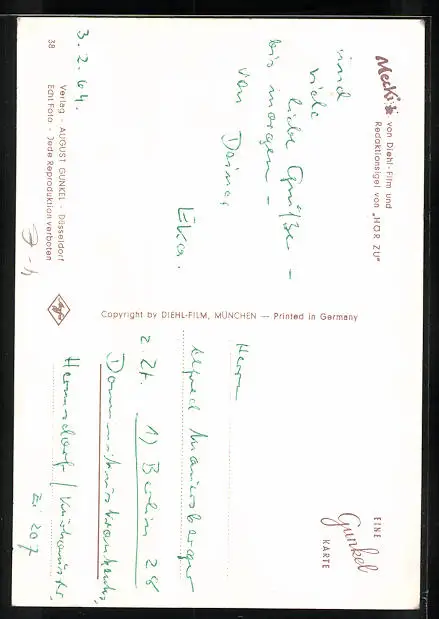 Mecki
von Diehl-Film und
Redaktionsigel von „HÖR ZU"
und
viele
liebe Grüße –
bis morgen –
von Deiner
Eka.
3. 2. 64.
Verlag - AUGUST GUNKEL - Düsseldorf
Echt Foto - Jede Reproduktion verboten
38
Copyright by DIEHL-FILM, MÜNCHEN — Printed in Germany
EINE
Gunkel
KARTE
Herrn
Alfred
z. Zt. 1) Berlin 28
Dominikuskrankenhaus,
Hermsdorf /
Zi 207